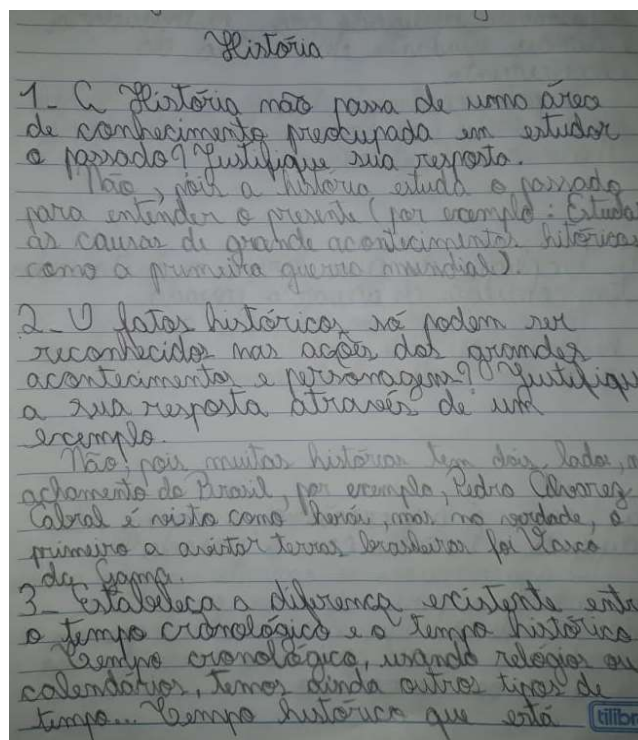 História
1- A História não passa de uma área
de conhecimento preocupada em estudar
o passado? Justifique sua resposta.
Não, pois a história estuda o passado
para entender o presente (por exemplo: Estuda
as causas de grande acontecimentos hitóricos
como a primeira guerra mundial).
2- O fatos históricos só podem ser
reconhecidos nas ações dos grandes
acontecimentos e personagens? Justifiqu
a sua resposta através de um
exemplo.
Não, pois muitas histórias tem dois lados, o
achamento do Brasil, por exemplo, Pedro Álvarez
Cabral é visto como herói, mas na verdade, o
primeiro a avistar terras brasileiras foi Vasco
da Gama.
3- Estabeleça a diferença existente entr
o tempo cronológico e o tempo histórico
Tempo cronológico, usando relógios ou
calendários, temos ainda outros tipos de
tempo... Tempo histórico que está
tilibr